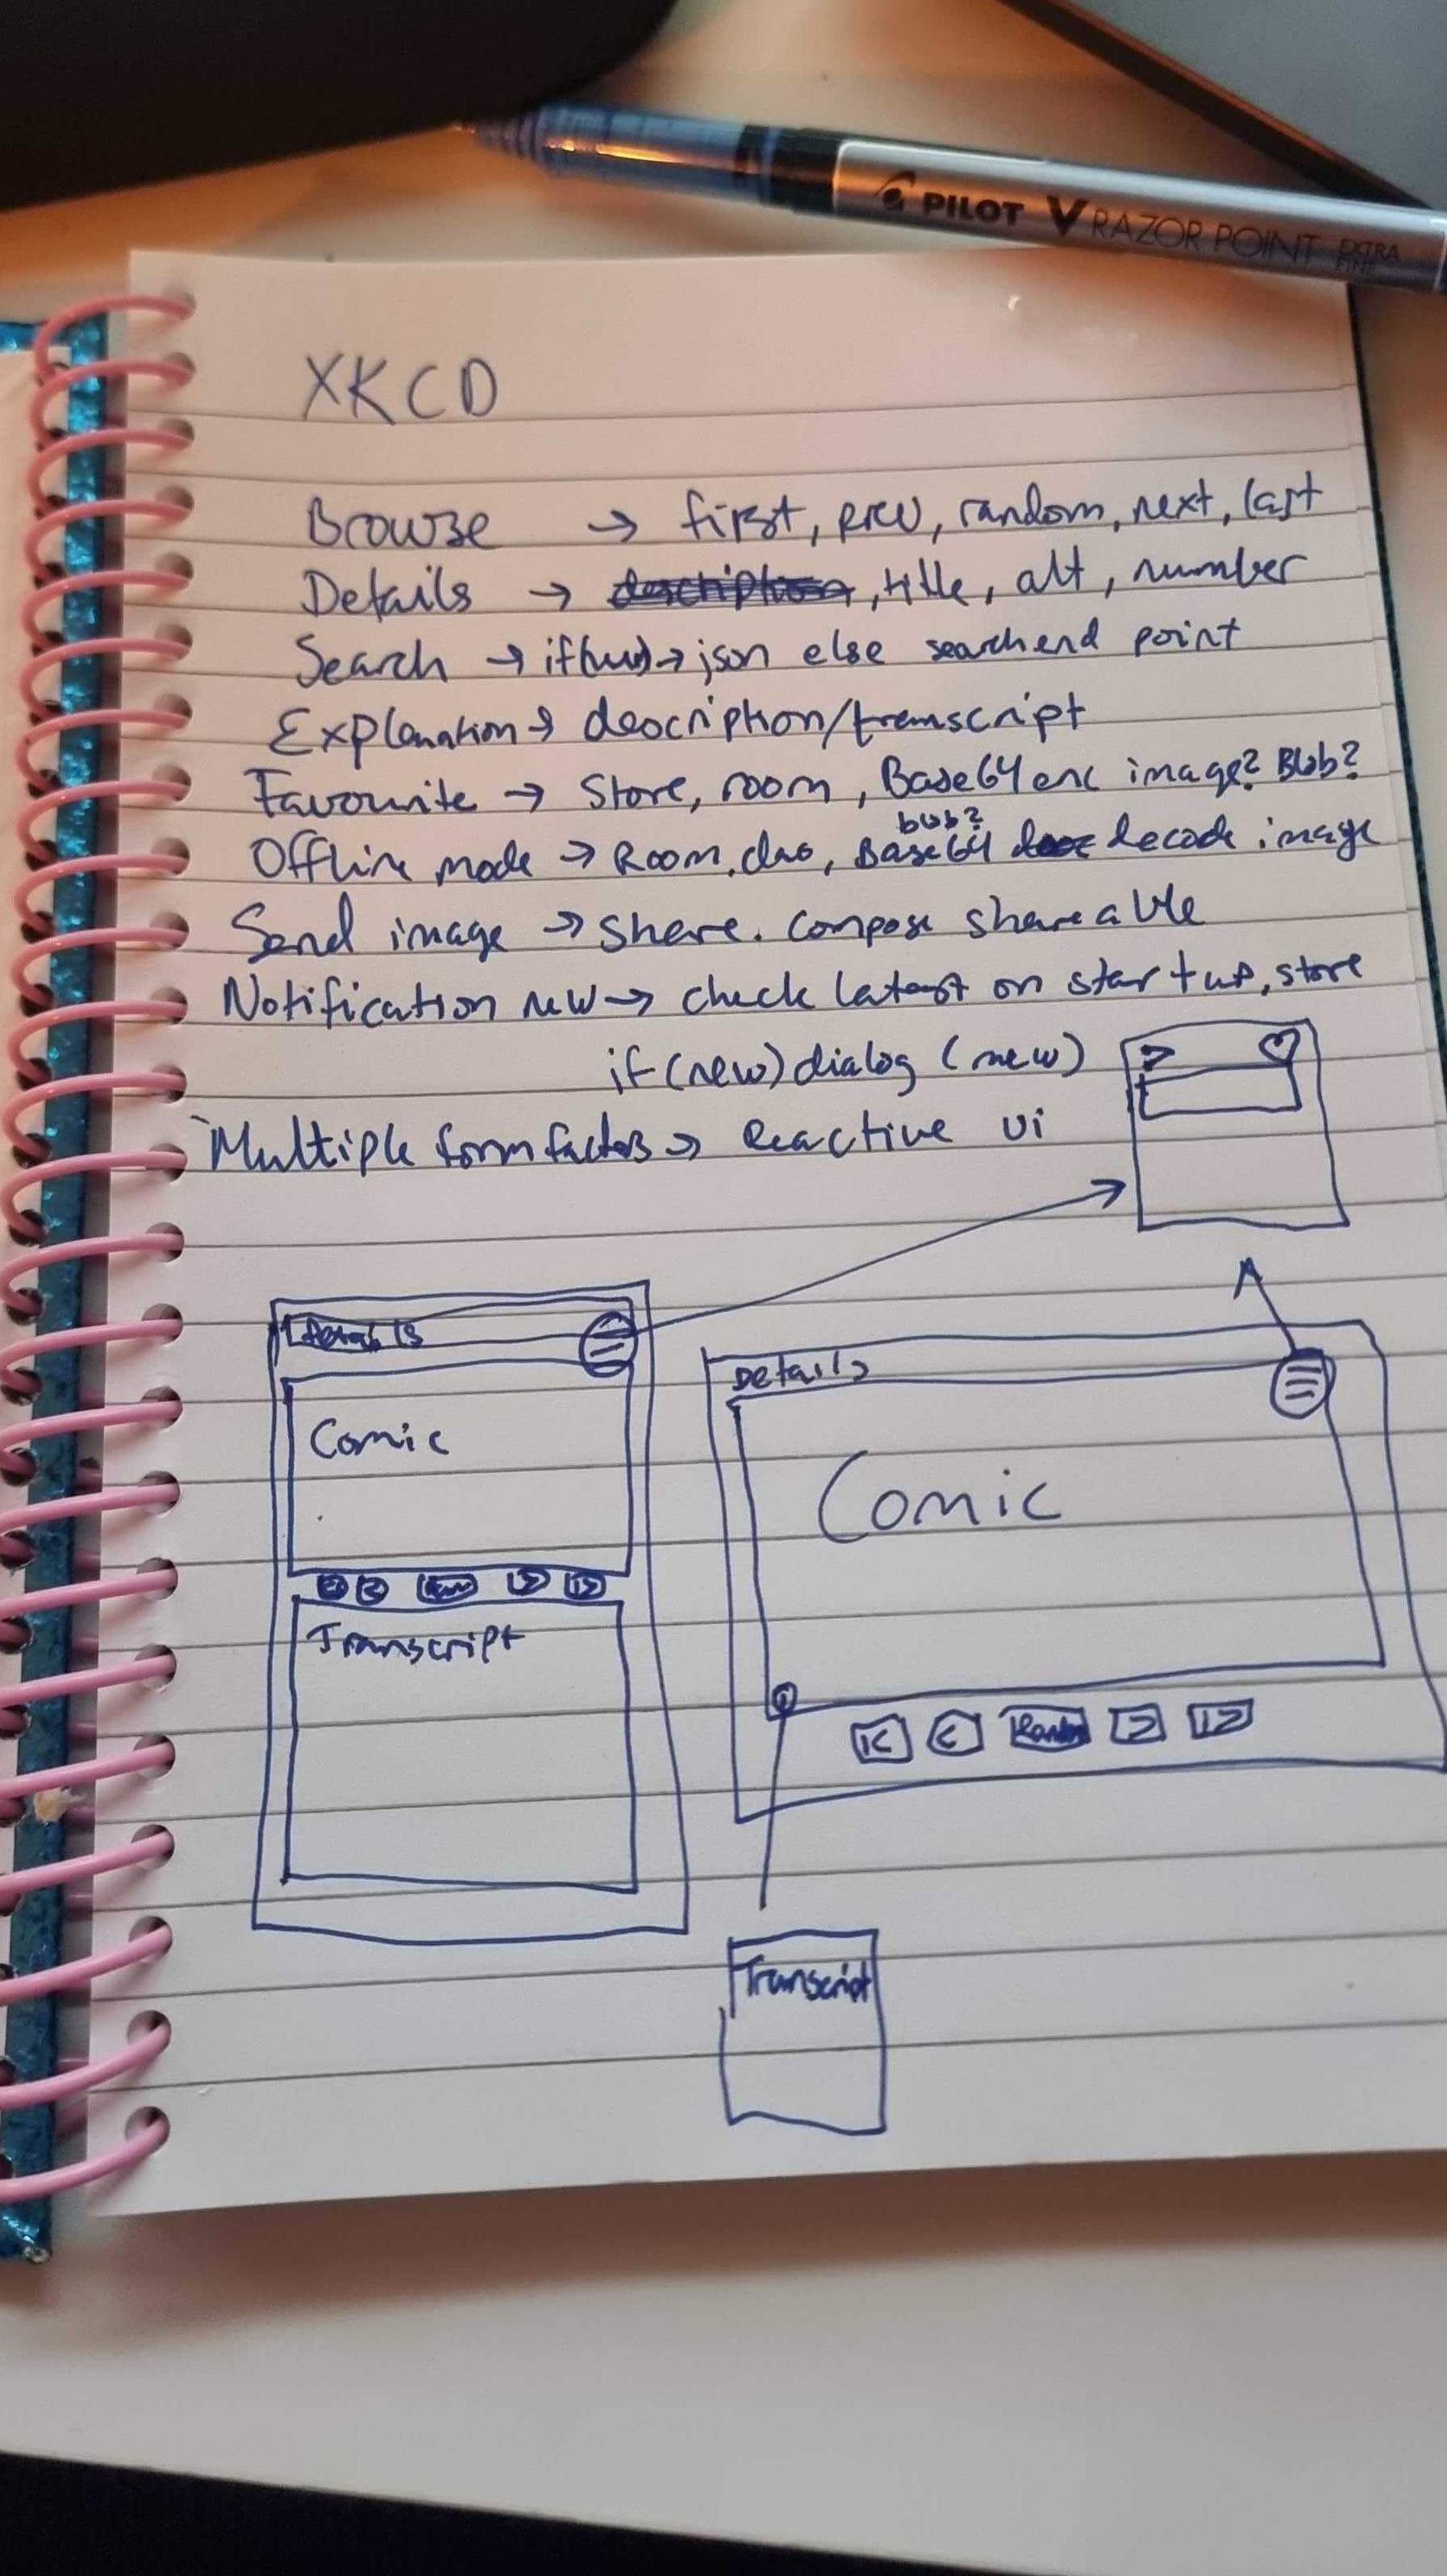 PILOT V RAZOR POINT EXTRA FINE
XKCD
Browse → first, prev, random, next, last
Details → description, title, alt, number
Search → if(num) → json else search end point
Explanation → description/transcript
Favourite → Store, room, Base64 enc image? Blob?
blob?
Offline mode → Room.dao, Base64 decode image
Send image → Share. Compose shareable
Notification new → check latest on startup, store
if (new) dialog (new)
Multiple form factors → Reactive ui
Details
Details
Comic
Comic
Transcript
|< < > >|
Transcript